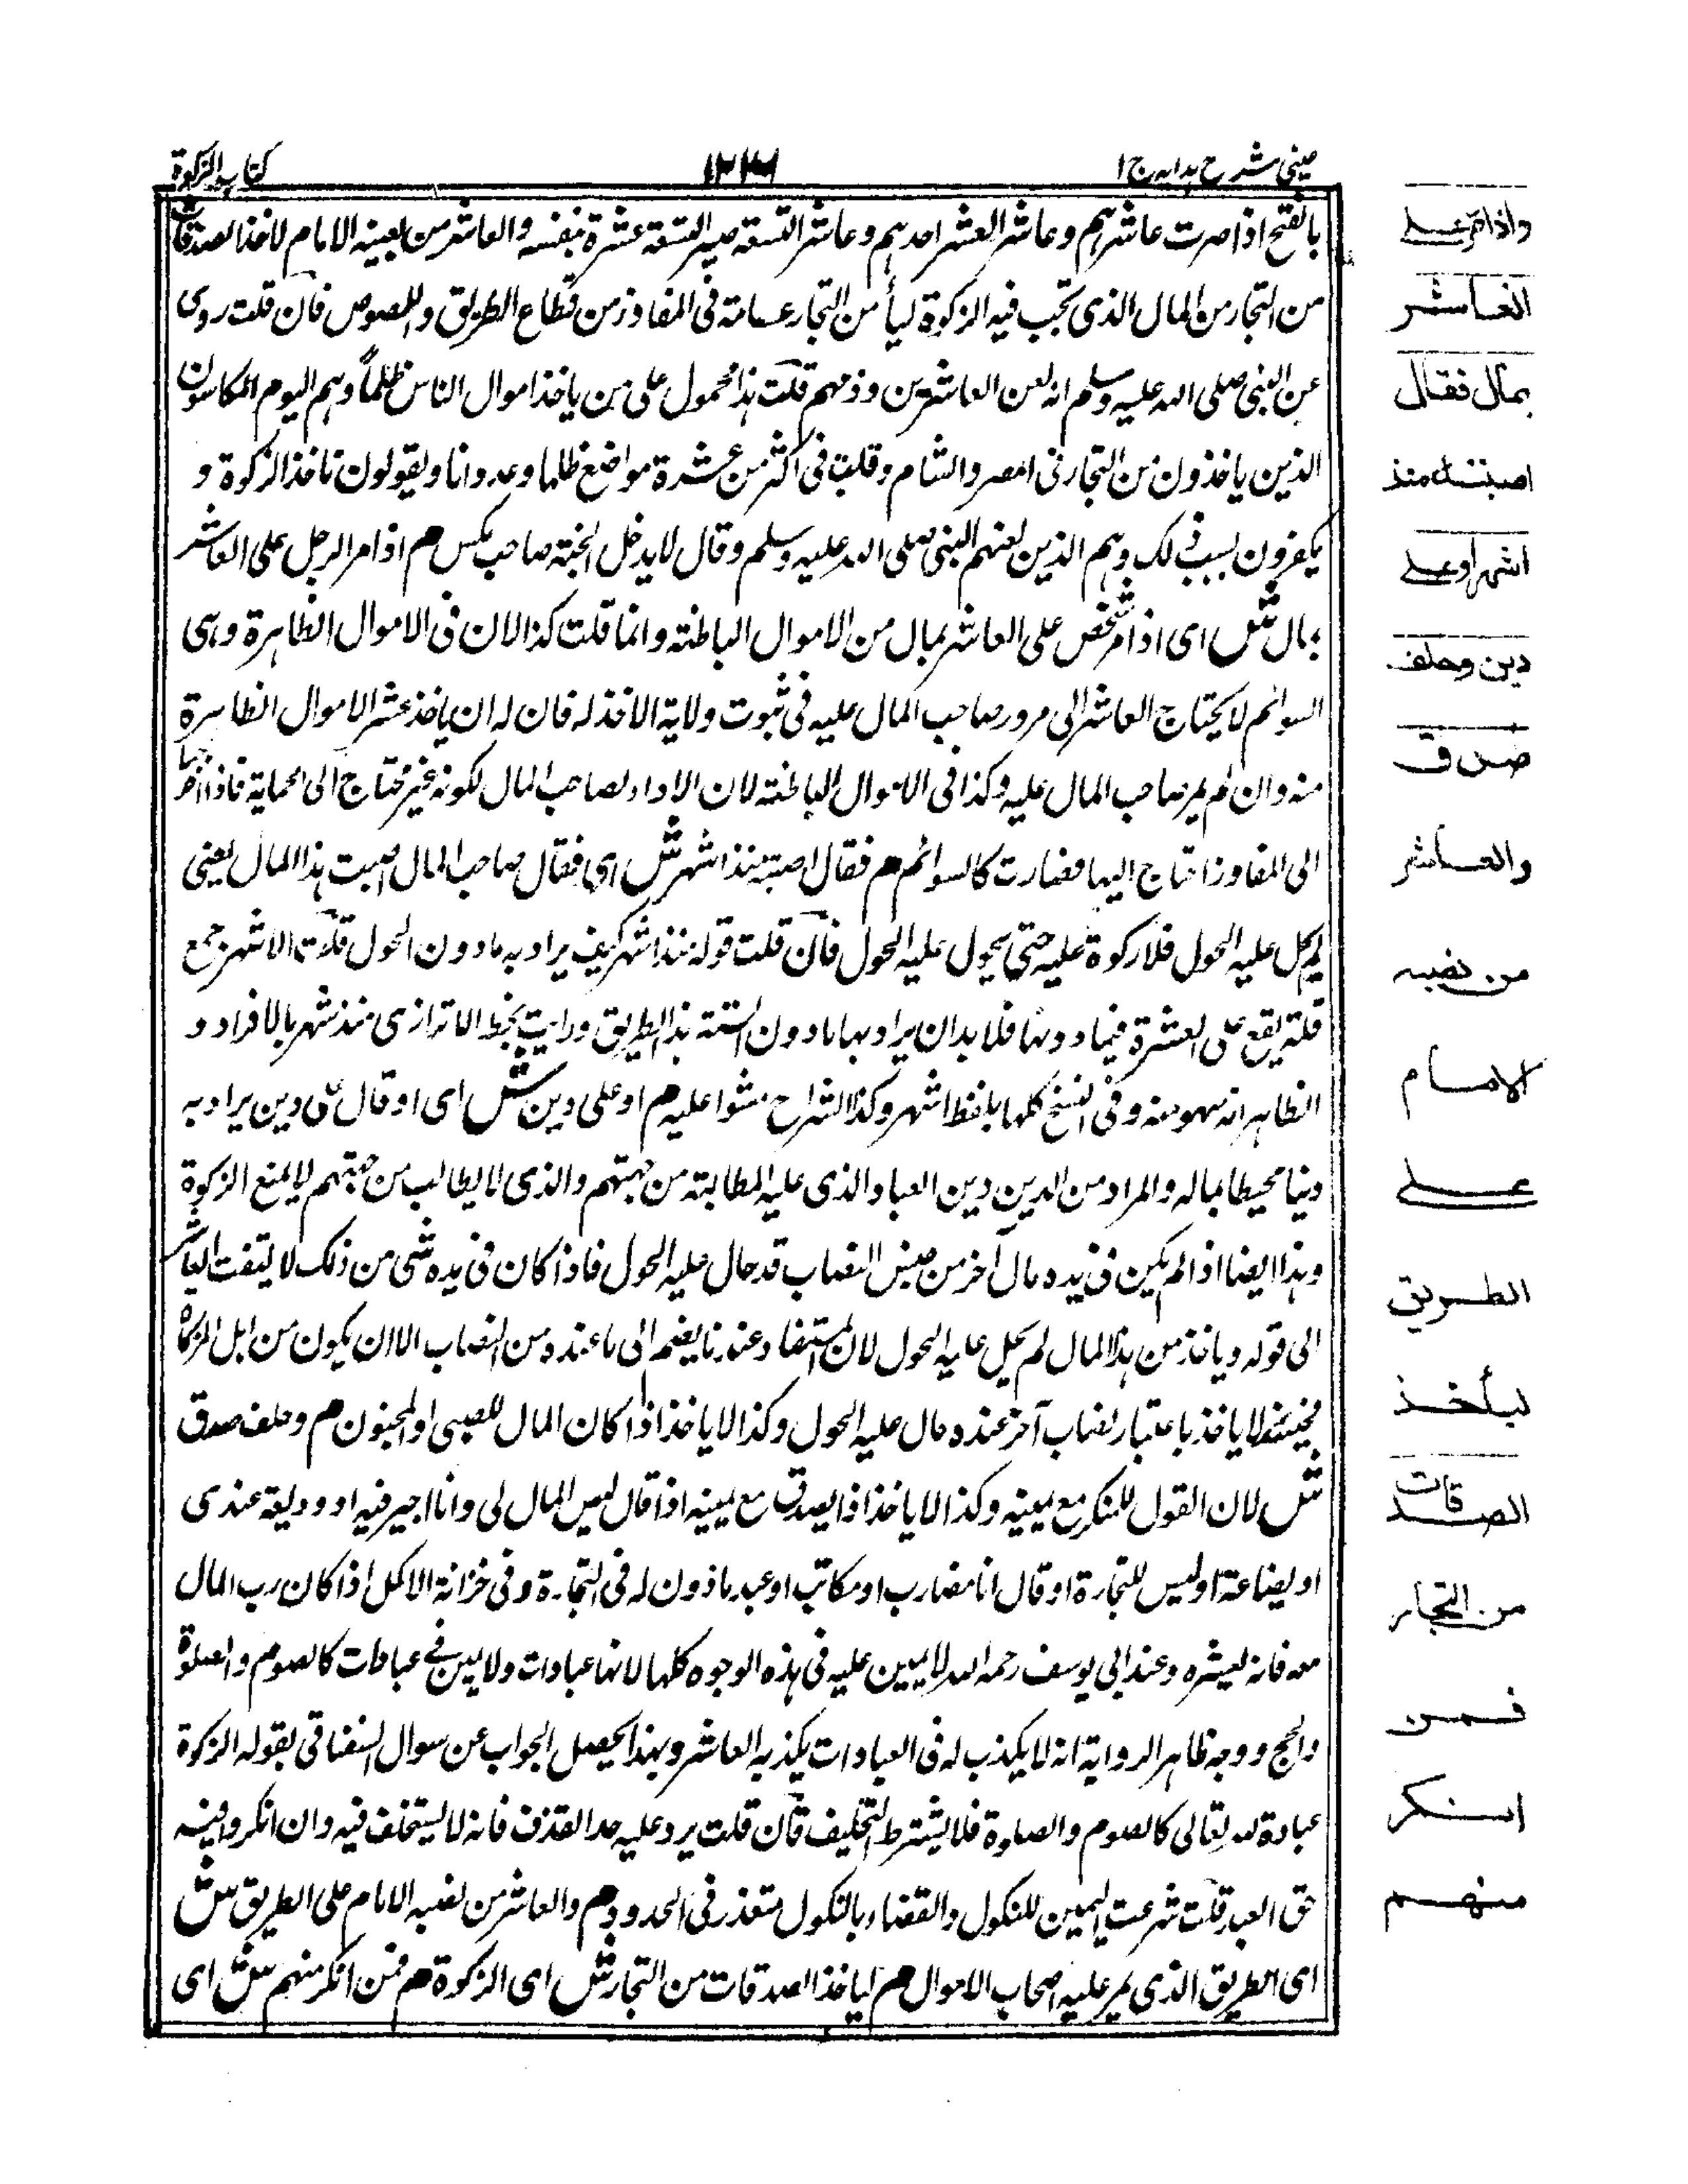 عینی شرح ہدایہ ج ۱
۱۲۳۶
کتاب الزکوة
بالفتح اذا صرت عاشرہم وعاشر العشر احدہم وعاشر التسعة صیر التسعة عشرة بنفسه والعاشر من یعینه الامام لاخذ الصدقات
من التجار من المال الذی تجب فیه الزکوة لیأمن التجار عـامة فی المفاوز من قطاع الطریق واللصوص فان قلت روی
عن النبی صلی الله علیه وسلم انه لعن العاشرین وذمهم قلت ہذا محمول علی من یاخذ اموال الناس ظلماً وہم الیوم المکاسون
الذین یاخذون من التجار فی المصر والشام وقلت فی اکثر من عشرة مواضع ظلما وعدوانا ویقولون ناخذ الزکوة و
یکفرون بسبب ذلک وہم الذین لعنهم النبی صلی الله علیه وسلم وقال لا یدخل الجنة صاحب مکس م اذا مر الرجل علی العاشر
بمال ش ای اذا مر شخص علی العاشر بمال من الاموال الباطنة وانما قلت کذا لان فی الاموال الظاہرة وہی
السوائم لا یحتاج العاشر الی مرور صاحب المال علیه فی ثبوت ولایة الاخذ له فان له ان یاخذ عشر الاموال الظاہرة
منه وان لم یمر صاحب المال علیه وکذا فی الاموال الباطنة لان الاداء لصاحب المال لکونه غیر محتاج الی الحمایة فاذا اخرجها
الی المفاوز احتاج الیها فصارت کالسوائم م فقال اصبته منذ اشهر ش ای فقال صاحب المال اصبت ہذا المال یعنی
لم یحل علیه الحول فلا زکوة علیه حتی یحول علیه الحول فان قلت قوله منذ اشهر کیف یراد به ما دون الحول قلت الاشهر جمع
قلة یقع علی العشرة فیما دونها فلا بد ان یراد بها ما دون السنة بذا الطریق ورایت بخط الاترازی منذ شهر بالافراد و
الظاہر انه سهو منه وفی النسخ کلها بلفظ اشهر وکذا الشراح مشوا علیه م او علی دین ش ای او قال علی دین یراد به
دینا محیطا بماله والمراد من الدین دین العباد الذی علیه المطالبة من جهتهم والذی لا یطالب من جهتهم لا یمنع الزکوة
وہذا ایضا اذا لم یکن فی یده مال آخر من جنس النصاب قد حال علیه الحول فاذا کان فی یده شی من ذلک لا یلتفت العاشر
الی قوله ویاخذ من ہذا المال لم یحل علیه الحول لان المستفاد عندنا یضم الی ما عنده من النصاب الا ان یکون من ابل المزکاة
فحینئذ لا یاخذ باعتبار نصاب آخر عنده حال علیه الحول وکذا لا یاخذ اذا کان المال للصبی او المجنون م وحلف صدق
ش لان القول للمنکر مع یمینه وکذا لا یاخذ اذا یصدق مع یمینه اذا قال لیس المال لی وانا اجیر فیه او ودیعة عندی
او بضاعة او لیس للتجارة او قال انا مضارب او مکاتب او عبد ماذون له فی التجارة وفی خزانة الاکمل اذا کان رب المال
معه فانه یعشره وعند ابی یوسف رحمه الله لا یمین علیه فی ہذه الوجوه کلها لانها عبادات ولا یمین فے عبادات کالصوم والصلوة
والحج ووجه ظاہر الروایة انه لا یکذب له فی العبادات یکذبه العاشر وبهذا یحصل الجواب عن سوال السغناقی بقوله الزکوة
عبادة لله تعالی کالصوم والصلوة فلا یشترط التحلیف فان قلت یرد علیه حد القذف فانه لا یستحلف فیه وان انکر وفیه
حق العبد قلت شرعت الیمین للنکول والقضاء بالنکول متعذر فی الحدود م والعاشر من نصبه الامام علی الطریق ش
ای الطریق الذی یمر علیه اصحاب الاموال م لیاخذ الصدقات من التجار ش ای الزکوة م فمن انکر منهم ش ای
واذا مر علے
العاشر
بمال فقال
اصبته منذ
اشهر او علے
دین وحلف
صدق
والعاشر
من نصبه
الامام
علے
الطریق
لیأخذ
الصدقات
من التجار
فمن
انکر
منهم